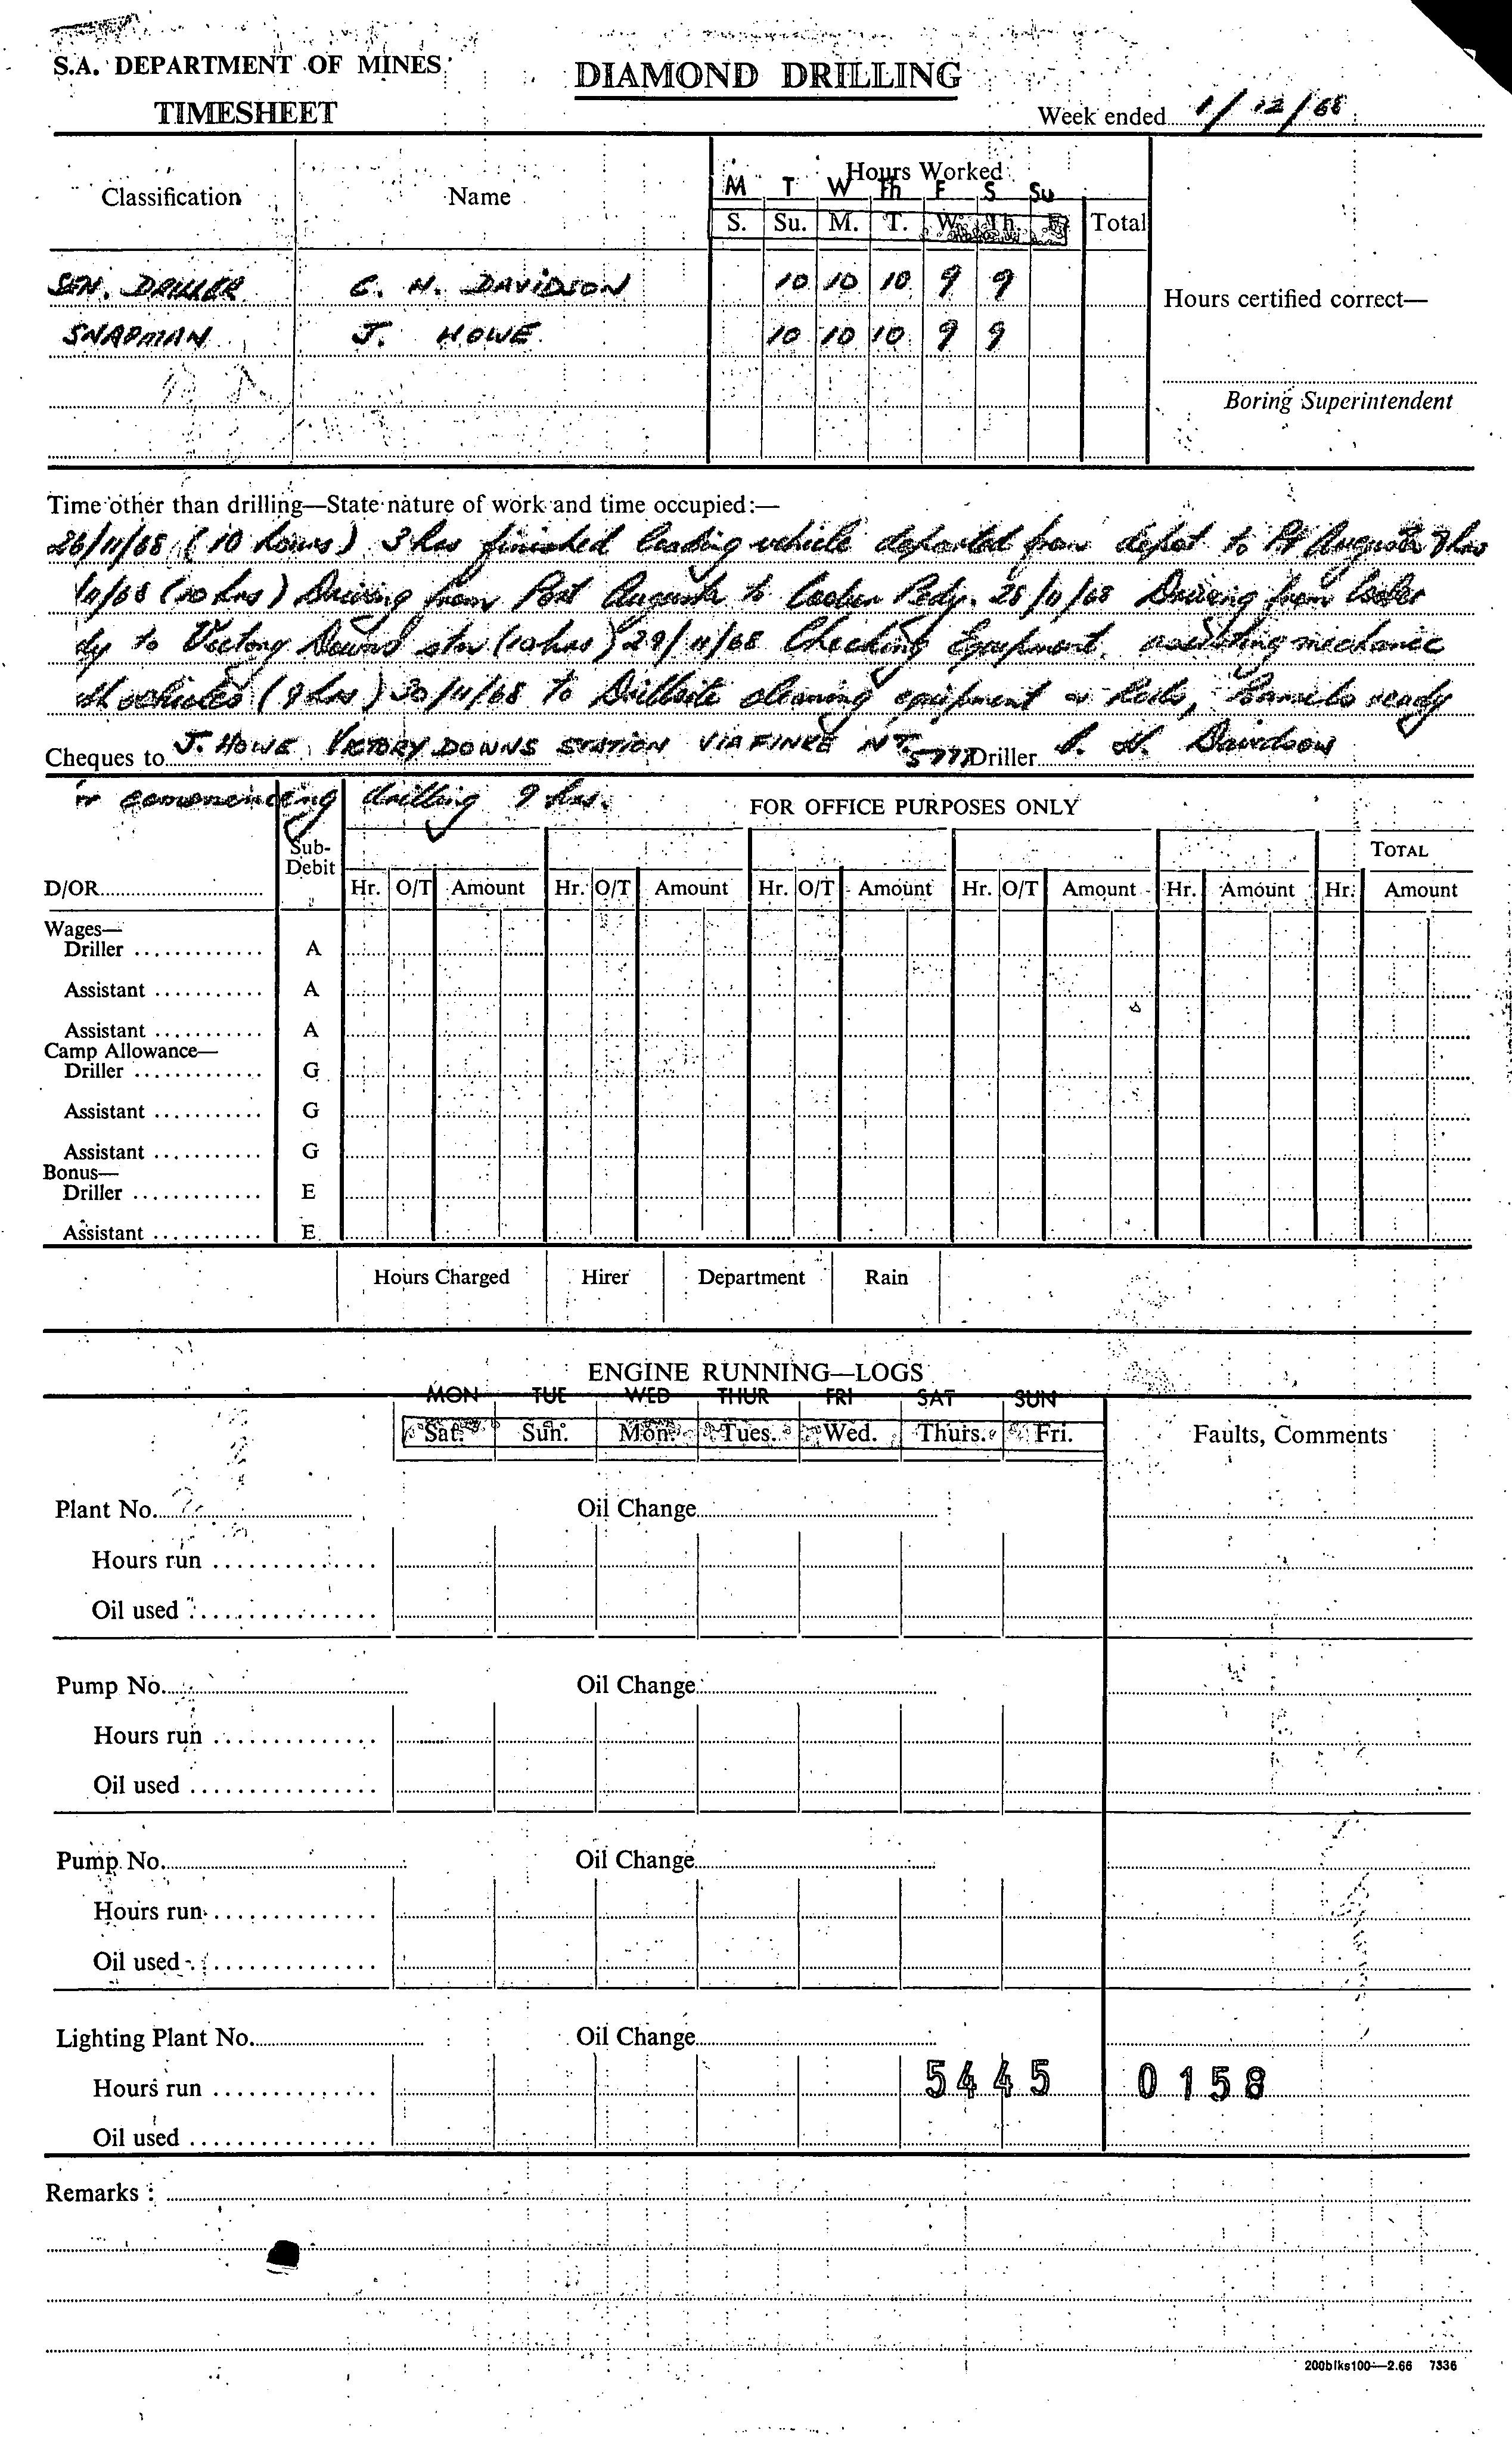 S.A. DEPARTMENT OF MINES
DIAMOND DRILLING
TIMESHEET
Week ended 1/12/68
Classification Name Hours Worked
M T W Th F S Su
S. Su. M. T. W. Th. F. Total
SEN. DRILLER C. H. DAVIDSON 10 10 10 9 9
Hours certified correct—
SNAPMAN J. HOWE 10 10 10 9 9
Boring Superintendent
Time other than drilling—State nature of work and time occupied:—
26/11/68 (10 hours) 3 hrs finished loading vehicle departed from depot to Pt Augusta 7 hrs
/11/68 (10 hrs) Driving from Port Augusta to Coober Pedy. 28/11/68 Driving from Coober
dy to Victory Downs stn (10 hrs) 29/11/68 Checking Equipment, assisting mechanic
vehicles (9 hrs) 30/11/68 to Drillsite cleaning equipment ready
Cheques to J. HOWE VICTORY DOWNS STATION VIA FINKE NT. 5777 Driller C. H. Davidson
commencing drilling 9 hrs.
FOR OFFICE PURPOSES ONLY
Sub-Debit
TOTAL
D/OR Hr. O/T Amount Hr. O/T Amount Hr. O/T Amount Hr. O/T Amount Hr. Amount Hr. Amount
Wages—
Driller A
Assistant A
Assistant A
Camp Allowance—
Driller G
Assistant G
Assistant G
Bonus—
Driller E
Assistant E
Hours Charged Hirer Department Rain
ENGINE RUNNING—LOGS
MON TUE WED THUR FRI SAT SUN
Sat. Sun. Mon. Tues. Wed. Thurs. Fri. Faults, Comments
Plant No. Oil Change
Hours run
Oil used
Pump No. Oil Change
Hours run
Oil used
Pump No. Oil Change
Hours run
Oil used
Lighting Plant No. Oil Change
Hours run 5445 0158
Oil used
Remarks :
200blks100—2.66 7336